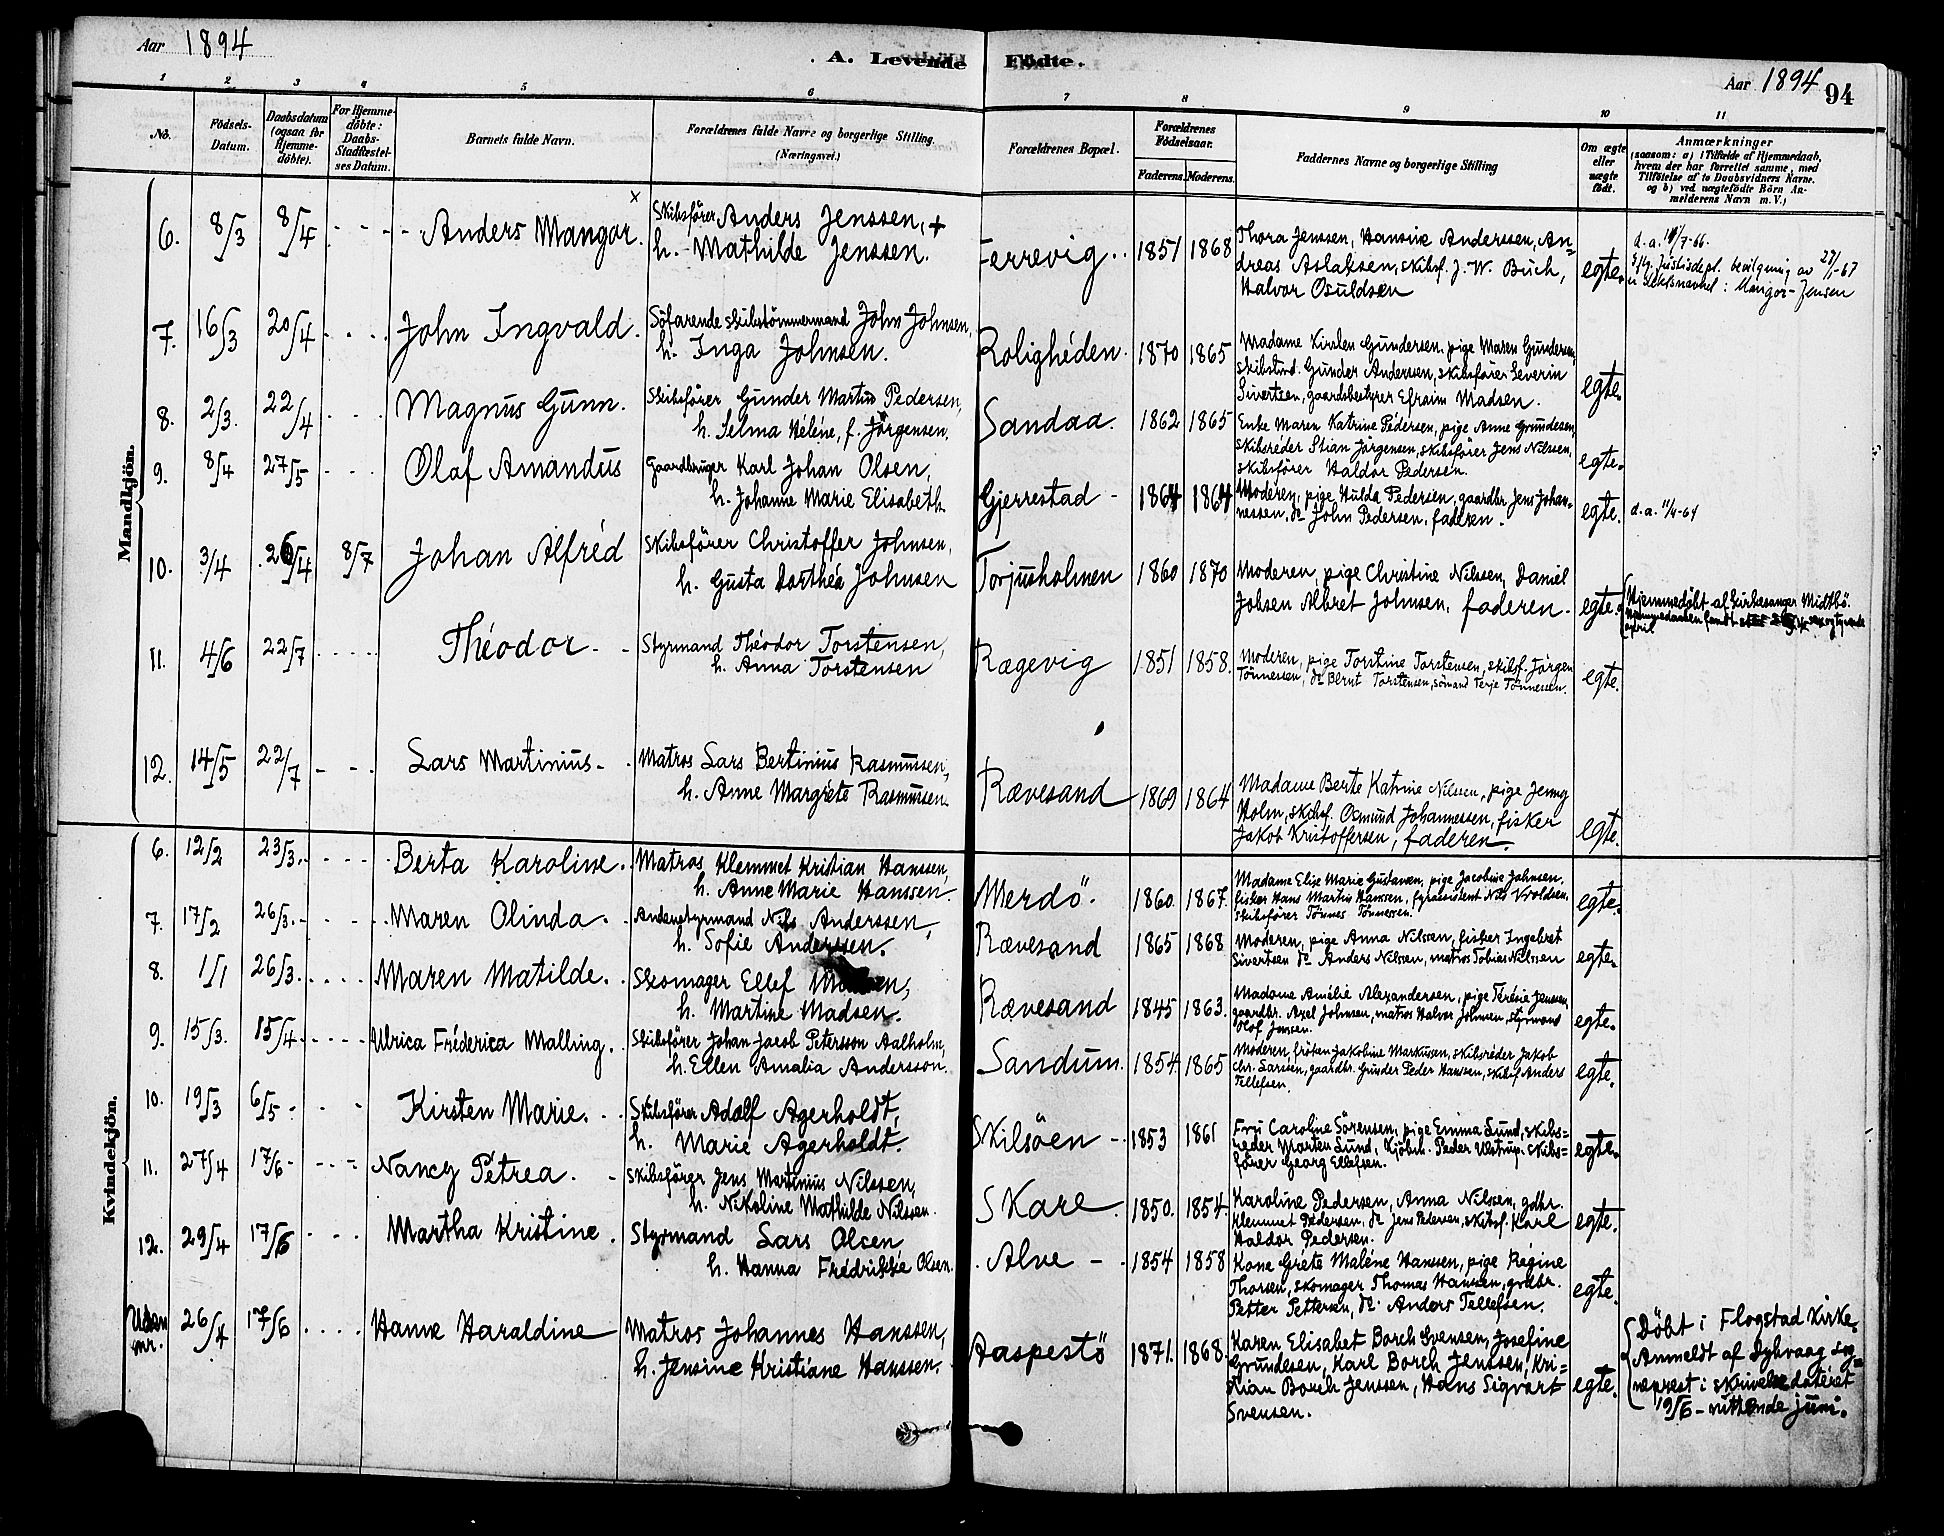 Aar 1894
A. Levende Födte.
Aar 1894 94
1 2 3 4 5 6 7 8 9 10 11
No.
Födsels-
Datum.
Daabsdatum
(ogsaa for
Hjemme-
döbte).
For Hjemme-
döbte:
Daabs-
Stadfæstel-
ses Datum.
Barnets fulde Navn.
Forældrenes fulde Navne og borgerlige Stilling
(Næringsvei.)
Forældrenes Bopæl.
Forældrenes
Födselsaar.
Faderens. Moderens.
Faddernes Navne og borgerlige Stilling
Om ægte
eller
uægte
født.
Anmærkninger
(saasom: a) i Tilfælde af Hjemmedaab,
hvem der har forrettet samme, med
Tilföielse af to Daabsvidners Navne.
og b) ved uægtefödte Börn An-
melderens Navn m.V.)
Mandkjön.
6. 8/3 8/4 Anders Mangor. x
Skibsförer Anders Jenssen, +
h. Mathilde Jenssen.
Ferrevig 1851 1868
Thora Jenssen, Hansine Anderssen, An=
dreas Aslaksen, skibsf. J. W. Buch,
Halvor Osuldsen
egte.
Justisdepl. bevilgning av 27/1-67
Slektsnavnet: Mangor-Jensen
7. 16/3 20/4 John Ingvald.
Söfarende skibstömmermand John Johnsen,
h. Inga Johnsen.
Roligheden. 1870 1865
Madame Kirsten Gundersen, pige Maren Gundersen,
skibstmd. Gunder Anderssen, skibsförer Severin
Sivertsen, gaardsbestyrer Efraim Madsen.
egte.
8. 2/3. 22/4 Magnus Gunn.
Skibsförer Gunder Martin Pedersen,
h. Selma Hélène, f. Jörgensen.
Sandaa. 1862 1865
Enke Maren Katrine Pedersen, pige Anne Grundesen,
skibsreder Stian Jörgensen, skibsförer Jens Nilssen,
skibsförer Haldor Pedersen.
egte.
9. 8/4 27/5 Olaf Amandus
Gaardbruger Karl Johan Olsen,
h. Johanne Marie Elisabeth
Gjerrestad 1864 1864
Moderen, pige Hulda Pedersen, gaardbr. Jens Johan-
nessen, do John Pedersen, faderen.
egte. d.a. 11/4-64
10. 3/4 26/4 8/7 Johan Alfréd
Skibsförer Christoffer Johnsen,
h. Gusta Dorthea Johnsen
Torjusholmen 1860 1870
Moderen, pige Christine Nilssen, Daniel
Jobsen Albret Johnsen, faderen.
egte.
Hjemmedöbt af Kirkesanger Midtbö.
april
11. 4/6 22/7 Théodor
Styrmand Théodor Torstensen,
h. Anna Torstensen
Rægevig 1851 1858.
Moderen, pige Torstine Torstensen, skibsf. Jörgen
Tönnessen, do Bernt Torstensen, sömand Terje Tönnessen.
egte.
12. 14/5 22/7 Lars Martinius
Matros Lars Bertinius Rasmussen,
h. Anne Margrete Rasmussen
Rævesand 1869 1864
Madame Berte Katrine Nilssen, pige Jenny
Holm, skibsf. Osmund Johannessen, fisker
Jakob Kristoffersen, faderen.
egte.
Kvindekjön.
6. 12/2 23/3. Berta Karoline.
Matros Klemmet Kristian Hanssen,
h. Anne Marie Hanssen.
Merdö. 1860 1867.
Madame Elise Marie Gustavsen, pige Jacobine Johnsen,
fisker Hans Martin Hanssen, fyrassistent Nils Kroldsen,
skibsförer Tönnes Tönnessen.
egte.
7. 17/2 26/3. Maren Olinda.
Andenstyrmand Nils Anderssen,
h. Sofie Anderssen.
Rævesand 1865 1868
Moderen, pige Anna Nilssen, fisker Ingebret
Sivertsen do Anders Nilssen, matros Tobias Nilssen
egte.
8. 1/1 26/3. Maren Matilde.
Skomager Ellef Madsen,
h. Martine Madsen.
Rævesand 1845 1863.
Madame Amélie Alexandersen, pige Térésie Jenssen,
gaardbr. Axel Johnsen, matros Halvor Johnsen, styrmand
Olof Jensen.
egte.
9. 15/3. 15/4. Ulrica Fréderica Malling.
Skibsförer Johan Jacob Petersson Aalholm,
h. Ellen Amalia Andersson.
Sandum. 1854 1865
Moderen, fröken Jakobine Markussen, skibsreder Jakob
Chr. Larssen, gaardbr. Gunder Peder Hanssen, skibsf. Anders
Tellefsen.
egte.
10. 19/3 6/5 Kirsten Marie.
Skibsförer Adolf Agerholdt,
h. Marie Agerholdt.
Skilsöen 1853 1861
Fru Caroline Sörensen, pige Emma Lund, skibs=
reder Morten Lund, kjöbm. Peder Ulstrup, skibs=
förer Georg Ellefsen.
egte.
11. 27/4 17/6 Nancy Pétrea.
Skibsförer Jens Martinius Nilssen,
h. Nikoline Mathilde Nilssen.
Skare. 1850. 1854
Karoline Pedersen, Anna Nilssen, gdbr.
Klemmet Pedersen, do Jens Pedersen, skibsf. Karl
Haldor Pedersen.
egte.
12. 29/4 17/6 Martha Kristine.
Styrmand Lars Olsen
h. Hanna Fredrikke Olsen.
Alve 1854 1858
Kone Gréte Maléne Hanssen, pige Régine
Thorsen, skomager Thomas Hanssen, grdbr.
Petter Pettersen, do Anders Tellefsen.
egte.
Uden
nr. 26/4 17/6 Hanne Haraldine
Matros Johannes Hanssen,
h. Jensine Kristiane Hanssen.
Aaspestö 1871. 1868.
Karen Elisabet Borch Svensen, Josefine
Grundesen, Karl Borch Jenssen, Kri=
stian Borch Jenssen, Hans Sigvart
Svensen.
egte.
Döbt i Flogstad Kirke.
Anmeldt af Dyhvaag sog=
neprest i skrivelse dateret
19/6 - nittende juni.